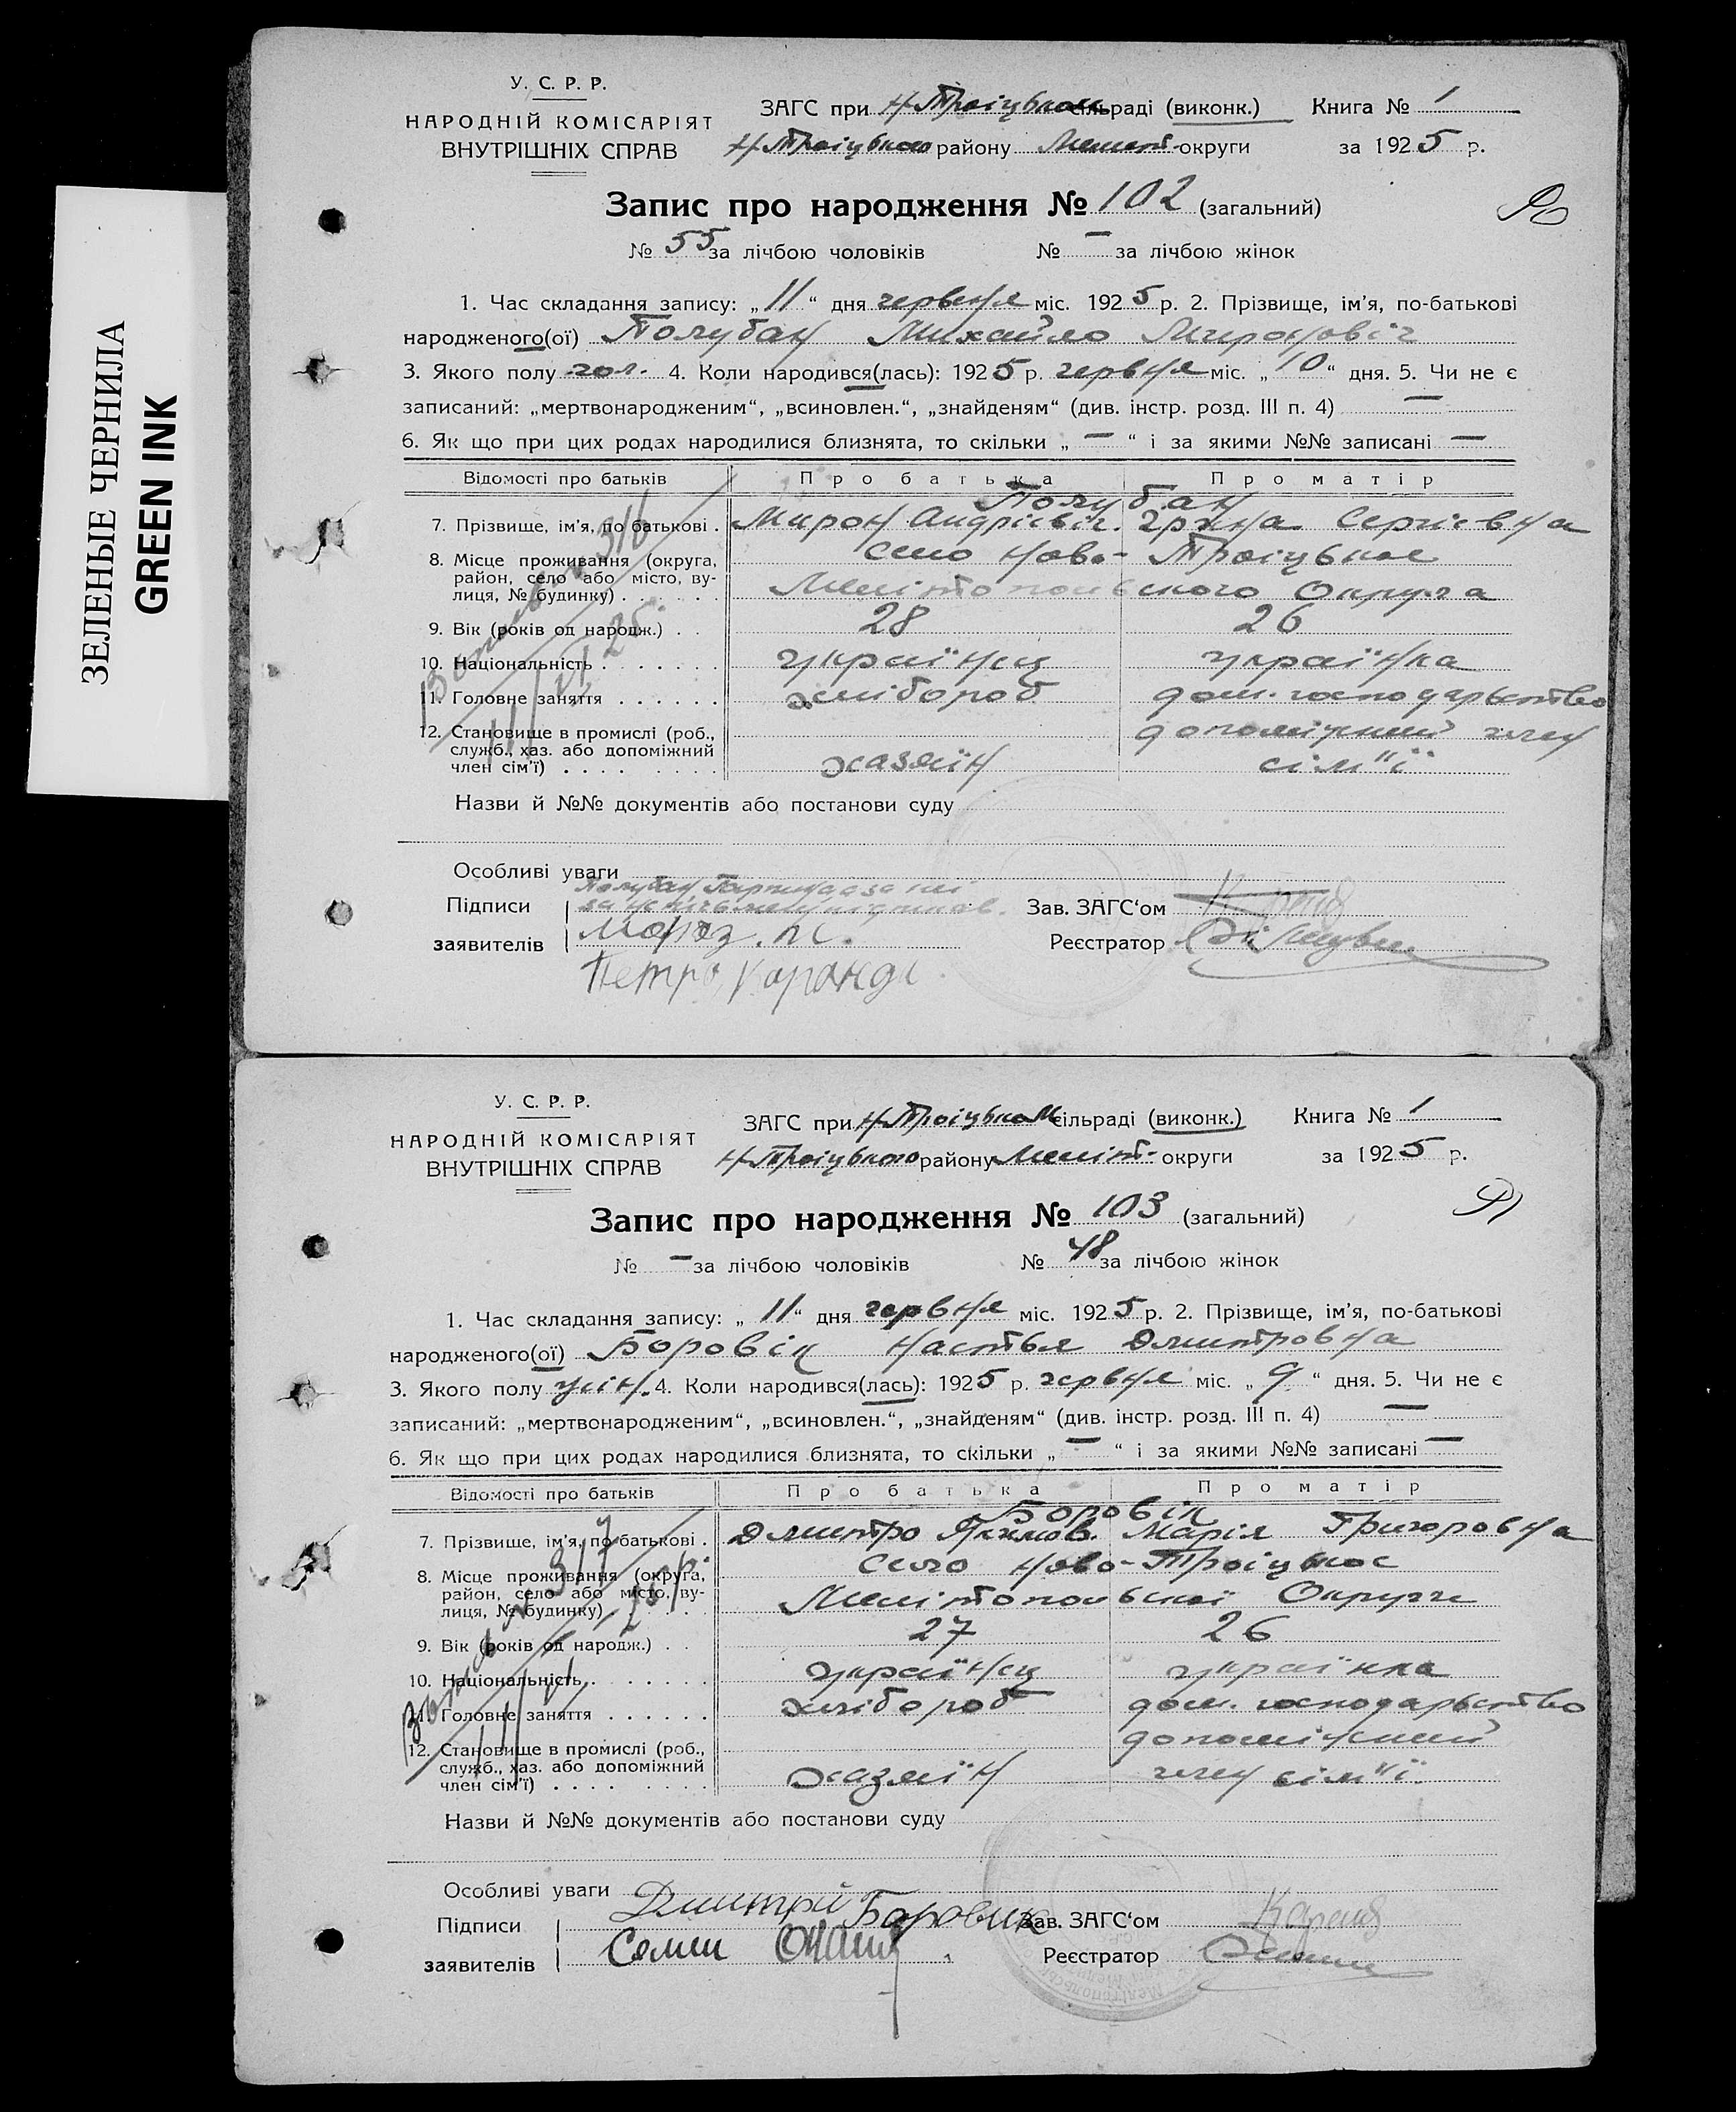 ЗЕЛЕНЫЕ ЧЕРНИЛА
GREEN INK
У. С. Р. Р.
НАРОДНІЙ КОМІСАРІЯТ
ВНУТРІШНІХ СПРАВ
ЗАГС при Н Троіцьком сільраді (виконк.) Книга № 1
Н Троіцького району Меліт- округи за 1925 р.
Запис про народження № 102 (загальний)
№ 55 за лічбою чоловіків № — за лічбою жінок
1. Час складання запису: „11“ дня червня міс. 1925 р. 2. Прізвище, ім'я, по-батькові
народженого(ої) Полубан Михайло Миронович
3. Якого полу чол. 4. Коли народився(лась): 1925 р. червня міс. „10“ дня. 5. Чи не є
записаний: „мертвонародженим“, „всиновлен.“, „знайденям“ (див. інстр. розд. III п. 4) —
6. Як що при цих родах народилися близнята, то скільки „ — “ і за якими №№ записані —
Відомості про батьків Про батька Про матір
Полубан
7. Прізвище, ім'я, по батькові . Мирон Андрієвіч. Сергієвна
8. Місце проживання (округа, район, село або місто, вулиця, № будинку) село Ново-Троіцькое
Мелітопольского Округа
9. Вік (років од народж.) . . 28 26
10. Національність . . . . . . . українец українка
11. Головне заняття . . . . . . хлібороб дом. господарьство
12. Становище в промислі (роб., служб., хаз. або допоміжний член сім'ї) . . . . хазяїн допоміжний член
сім"ї
Назви й №№ документів або постанови суду
Особливі уваги
Полубан
Підписи
заявителів Мороз.
Петро
Зав. ЗАГС'ом
Реєстратор
У. С. Р. Р.
НАРОДНІЙ КОМІСАРІЯТ
ВНУТРІШНІХ СПРАВ
ЗАГС при Н Троіцьком сільраді (виконк.) Книга № 1
Н Троіцького району Меліт- округи за 1925 р.
Запис про народження № 103 (загальний)
№ — за лічбою чоловіків № 48 за лічбою жінок
1. Час складання запису: „11“ дня червня міс. 1925 р. 2. Прізвище, ім'я, по-батькові
народженого(ої) Боровік Настья Дмитровна
3. Якого полу жін. 4. Коли народився(лась): 1925 р. червня міс. „9“ дня. 5. Чи не є
записаний: „мертвонародженим“, „всиновлен.“, „знайденям“ (див. інстр. розд. III п. 4) —
6. Як що при цих родах народилися близнята, то скільки „ — “ і за якими №№ записані —
Відомості про батьків Про батька Про матір
Боровік
7. Прізвище, ім'я, по батькові . Дмитро Якимов. Марія Григоровна
8. Місце проживання (округа, район, село або місто, вулиця, № будинку) село Ново-Троіцькое
Мелітопольскої Округи
9. Вік (років од народж.) . . 27 26
10. Національність . . . . . . . українец українка
11. Головне заняття . . . . . . хлібороб дом. господарьство
12. Становище в промислі (роб., служб., хаз. або допоміжний член сім'ї) . . . . хазяїн допоміжний
член сім"ї
Назви й №№ документів або постанови суду
Особливі уваги
Підписи Дмитрий Боровик
заявителів Семен
Зав. ЗАГС'ом
Реєстратор